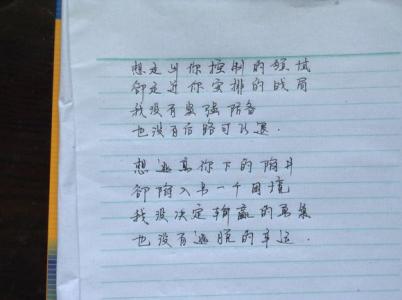 想走出你控制的领域
却走近你安排的战局
我没有坚强防备
也没有后路可以退
想逃离你下的陷井
却陷入另一个困境
我没决定输赢的勇气
也没有逃脱的幸运.